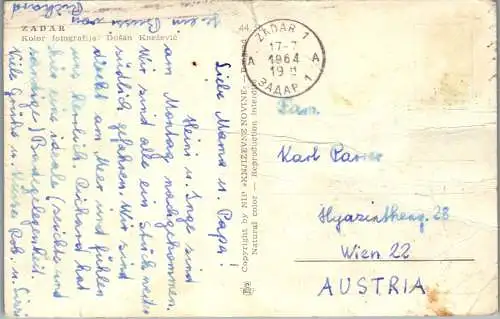 ZADAR
Kolor fotografija: Dušan Knežević
Liebe Mama u. Papa!
Heini u. Inge sind
am Montag nachgekommen.
Wir sind alle ein Stück weiter
südlich gefahren. Wir sind
direkt am Meer und fühlen
uns herrlich. Richard hat
hier eine ideale (seichte und
sandige) Badegelegenheit.
Viele Grüße u. Küsse Rob. u.
Je ein Bussi von
Richard
Copyright by NIP »KNJIŽARNE ZVONIMIR«
Natural color — Reproduction interdite
ZADAR 1
17-7
1964
19
A A
ЗАДАР 1
Fam.
Karl
Hyazintheng. 28
Wien 22
AUSTRIA